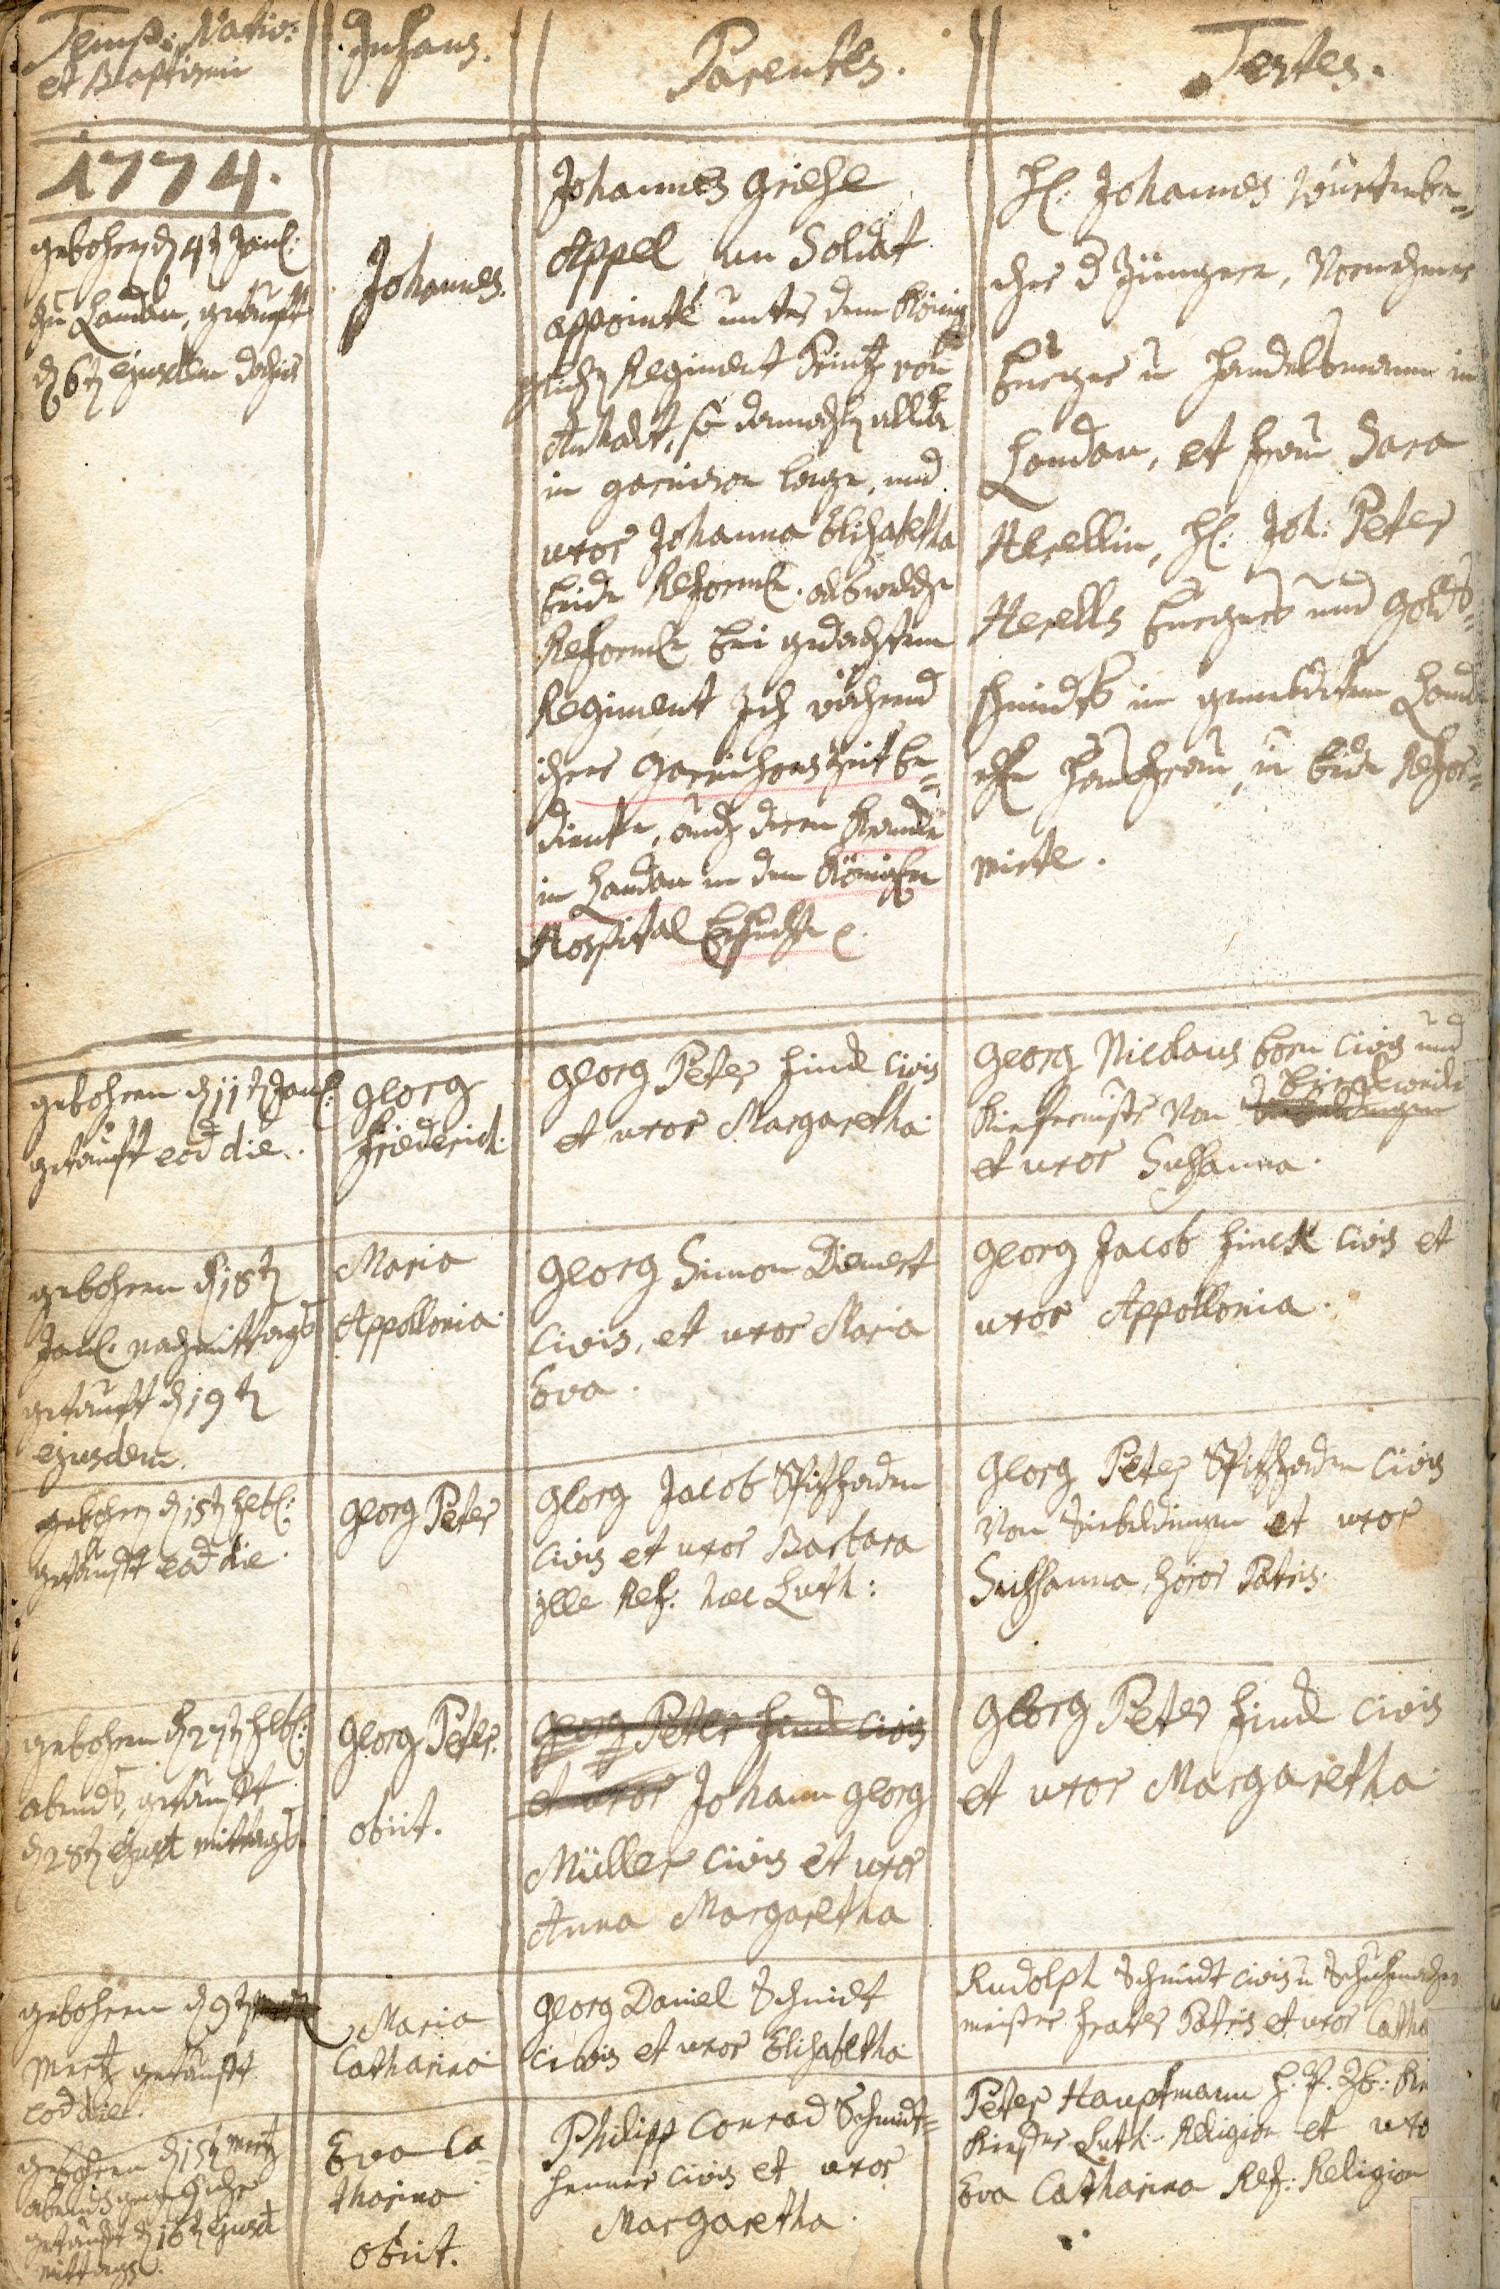 Temp: Nativ:
et Baptismi
Infans.
Parentes.
Testes.
1774.
gebohren d 4t Janr:
zu Landau, getaufft
d 6t ejusdem
Johannes.
Johannes
Appel ein Soldat
appointé unter dem König
Regiment Printz von
Anhalt, so dermahlen allda
in garnison lieget, und
uxor Johanna Elisabetha
beide Reformt.
Reformte bei gedachtem
Regiment Ich während
ihrer Garnisonszeit be-
diente, auch deren Krancke
in Landau in dem Königl
Hospital besuchte
H. Johannes
d Jüngere,
burger u Handelsmann in
Landau, et frau Sara
H. Joh: Peter
burgers und Gold-
schmidts in gemeldetem Land
Haußfrau, u beide Refor-
mirte.
gebohren d 11t Janr:
getaufft eod die.
Georg
Friederich.
Georg Peter Finck civis
et uxor Margaretha
Georg Nicolaus Born civis und
Kiefermeister Von Birckweiler
et uxor Susanna.
gebohren d 18t
Janr. nachmittags
getaufft d 19t
ejusdem.
Maria
Appollonia.
Georg Simon Dienert
civis, et uxor Maria
Eva.
Georg Jacob Finck civis et
uxor Appollonia.
gebohren d 15t Febr:
getaufft eod die
Georg Peter
Georg Jacob Spitzfaden
civis et uxor Barbara
ille Ref: haec Luth:
Georg Peter Spitzfaden civis
Von Siebeldingen et uxor
Sussanna, soror Patris.
gebohren d 27t Febr:
abends, getaufft
d 28t ejusd mittags.
Georg Peter.
obiit.
Georg Peter Finck civis
et uxor Johann Georg
Müller civis et uxor
Anna Margaretha
Georg Peter Finck civis
et uxor Margaretha
gebohren d 9t
Mertz getaufft
eod die.
Maria
Catharina
Georg Daniel Schmidt
civis et uxor Elisabetha
Rudolph Schmidt civis u Schuhmacher
meister frater Patris et uxor Catha
gebohren d 15t Mertz
abends gegen 9 uhr
getaufft d 16t ejusd
mittags.
Eva Ca-
tharina
obiit.
Philipp Conrad Schmidt-
henner civis et uxor
Margaretha.
Peter Hauptmann
Luth: Religion et uxo
Eva Catharina Ref: Religion